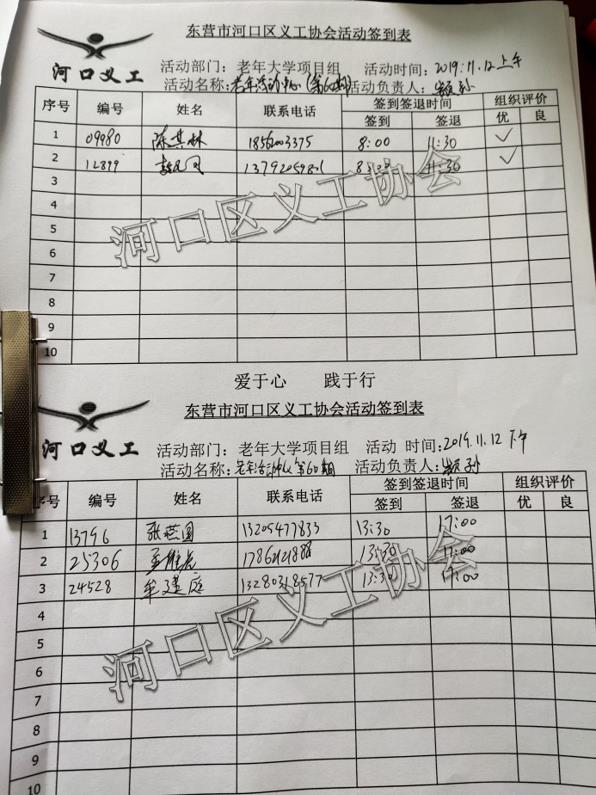 东营市河口区义工协会活动签到表
河口义工
活动部门：老年大学项目组 活动时间：2019.11.12上午
活动名称：老年活动中心（第60期） 活动负责人：
序号 编号 姓名 联系电话 签到签退时间 组织评价
签到 签退 优 良
1 09980 陈其林 8:00 11:30 ✓
2 8:30 11:30 ✓
3
4
5
6
7
8
9
10
河口区义工协会
爱于心 践于行
东营市河口区义工协会活动签到表
河口义工
活动部门：老年大学项目组 活动 时间：2019.11.12下午
活动名称：老年活动中心第60期 活动负责人：
序号 编号 姓名 联系电话 签到签退时间 组织评价
签到 签退 优 良
1 13796 张 国 13205477833 13:30 17:00
2 25306 13:30 17:00
3 24528 牟建庭 13280318577 13:30 17:00
4
5
6
7
8
9
10
河口区义工协会